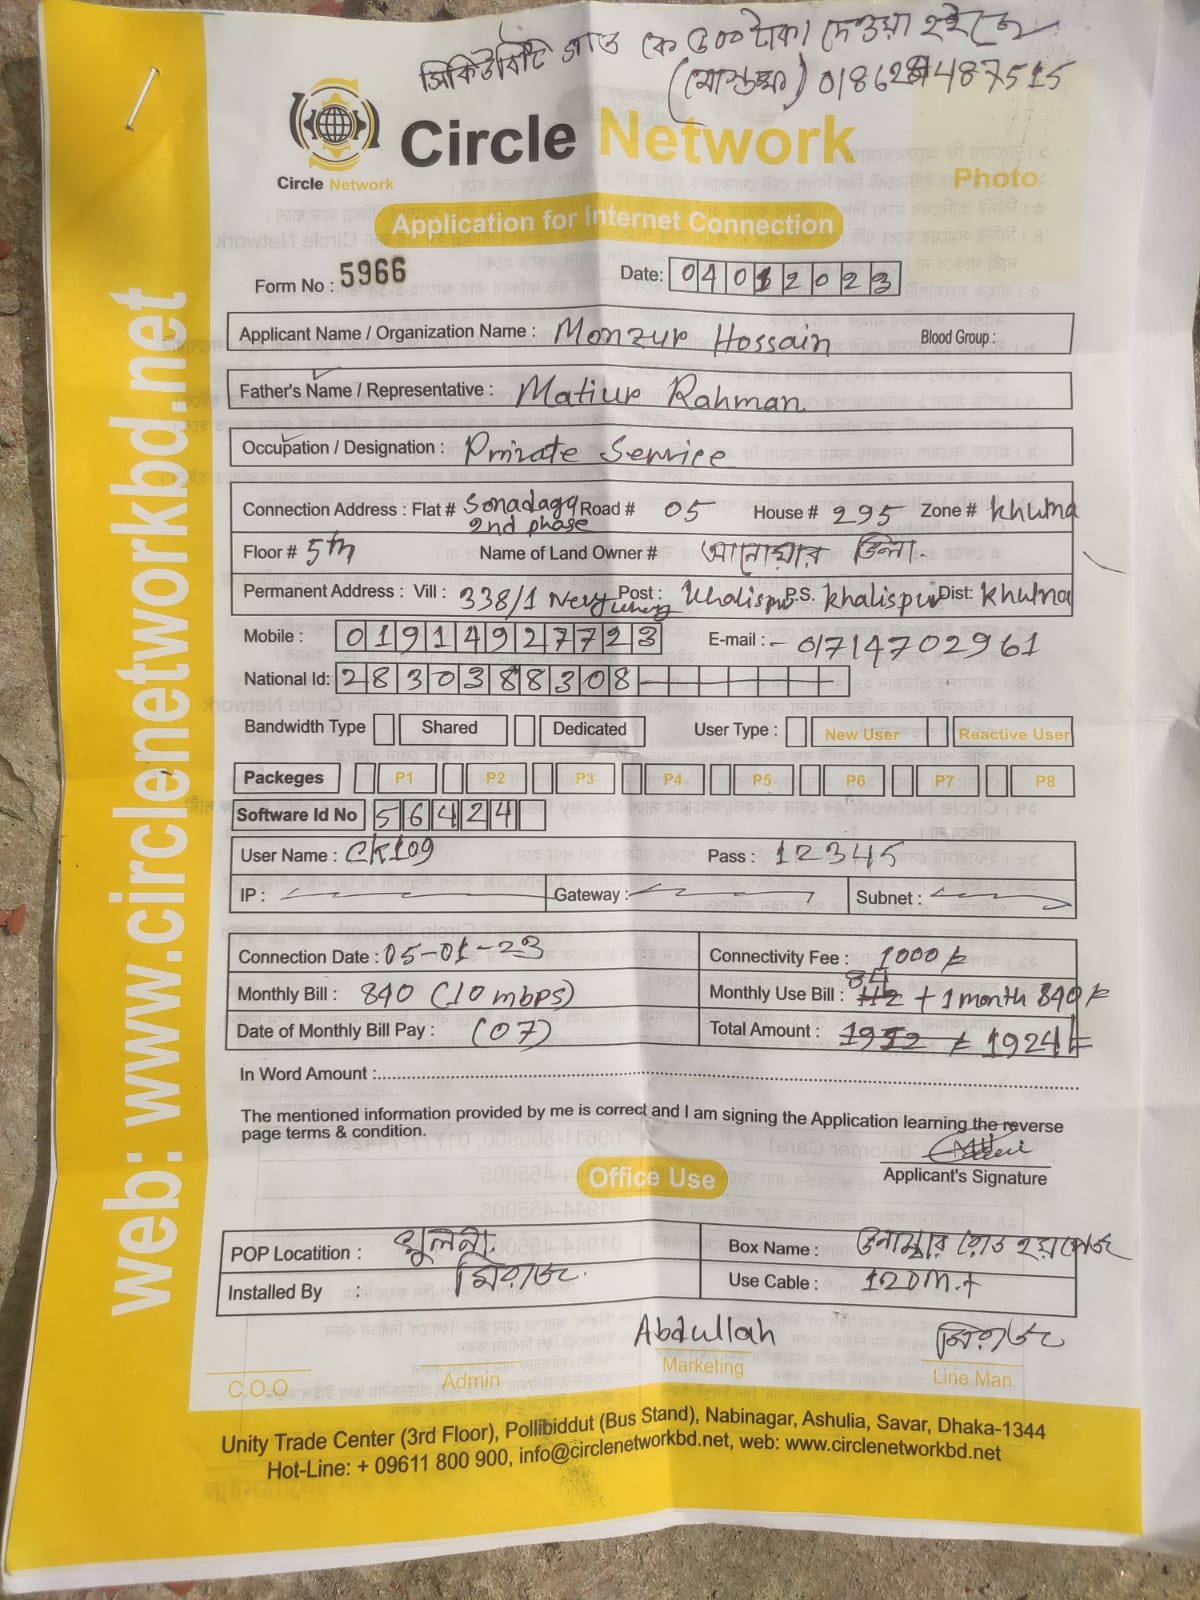 সিকিউরিটি গার্ড কে ৩০০ টাকা দেওয়া হইছে
01862487515
Circle Network
Circle Network
Photo
Application for Internet Connection
Form No : 5966
Date: 04012023
Applicant Name / Organization Name : Monzur Hossain Blood Group :
Father's Name / Representative : Matiur Rahman
Occupation / Designation : Private Service
Connection Address : Flat # Sonadagg 2nd phase Road # 05 House # 295 Zone # Khulna
Floor # 5th Name of Land Owner # আনোয়ার ভিলা
Permanent Address : Vill : 338/1 Nevy Post : Khalispur P.S. Khalispur Dist: Khulna
Mobile : 01914927723 E-mail : - 01714702961
National Id: 2830388308
Bandwidth Type Shared Dedicated User Type : New User Reactive User
Packeges P1 P2 P3 P4 P5 P6 P7 P8
Software Id No 56424
User Name : CK109 Pass : 12345
IP : Gateway : Subnet :
Connection Date : 05-01-23 Connectivity Fee : 1000/=
Monthly Bill : 840 (10 mbps) Monthly Use Bill : 84 + 1 month 840/=
Date of Monthly Bill Pay : (07) Total Amount : 1952/= 1924/=
In Word Amount :
The mentioned information provided by me is correct and I am signing the Application learning the reverse
page terms & condition.
Applicant's Signature
Office Use
POP Locatition : খুলনা Box Name :
Installed By : মিরাজ Use Cable : 120M.t
Abdullah মিরাজ
C.O.O Admin Marketing Line Man
Unity Trade Center (3rd Floor), Pollibiddut (Bus Stand), Nabinagar, Ashulia, Savar, Dhaka-1344
Hot-Line: + 09611 800 900, info@circlenetworkbd.net, web: www.circlenetworkbd.net
web: www.circlenetworkbd.net